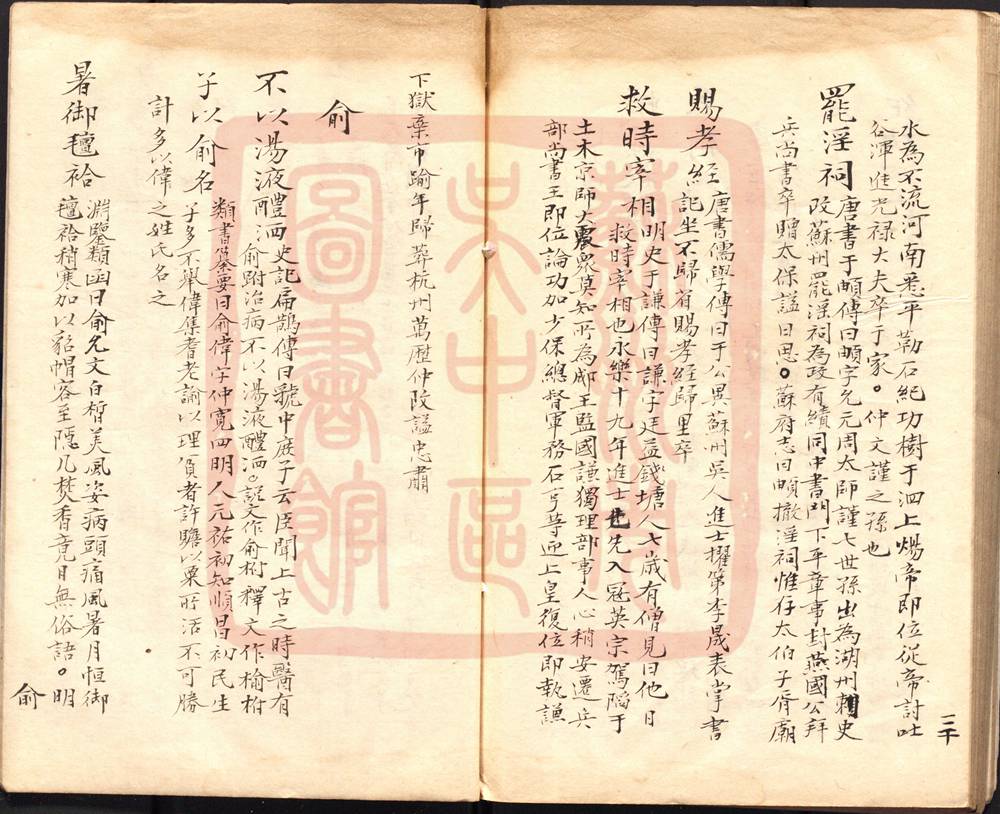 水為不流河南悉平勒石紀功樹于泗上煬帝即位從帝討吐
谷渾進光禄大夫卒于家。仲文謹之孫也
罷淫祠唐書于頔傳曰頔字允元周太師謹七世孫出為湖州刺史
改蘇州罷淫祠為政有績同中書門下平章事封燕國公拜
兵尚書卒贈太保謚曰思。蘇府志曰頔撤淫祠惟存太伯子胥廟
賜孝經唐書儒學傳曰于公異蘇州吳人進士擢第李晟表掌書
記坐不歸省賜孝經歸里卒
救時宰相明史于謙傳曰謙字廷益錢塘人七歲有僧見曰他日
救時宰相也永樂十九年進士也先入寇英宗駕陷于
土木京師大震眾莫知所為郕王監國謙獨理部事人心稍安遷兵
部尚書王即位論功加少保總督軍務石亨等迎上皇復位即執謙
三十
下獄棄市踰年歸葬杭州萬歷仲改謚忠肅
俞
不以湯液醴洒史記扁鵲傳曰虢中庶子云臣聞上古之時醫有
俞跗治病不以湯液醴洒。說文作俞柎釋文作榆柎
子以俞名類書纂要曰俞偉字仲寬四明人元祐初知順昌初民生
子多不舉偉集耆老諭以理負者許贍以粟所活不可勝
計多以偉之姓氏名之
暑御氊袷淵鑒類函曰俞允文白皙美風姿病頭痛風暑月恒御
氊袷稍寒加以貂帽容至隱几焚香竟日無俗語。明
俞
蘇州
吳中區
圖書館